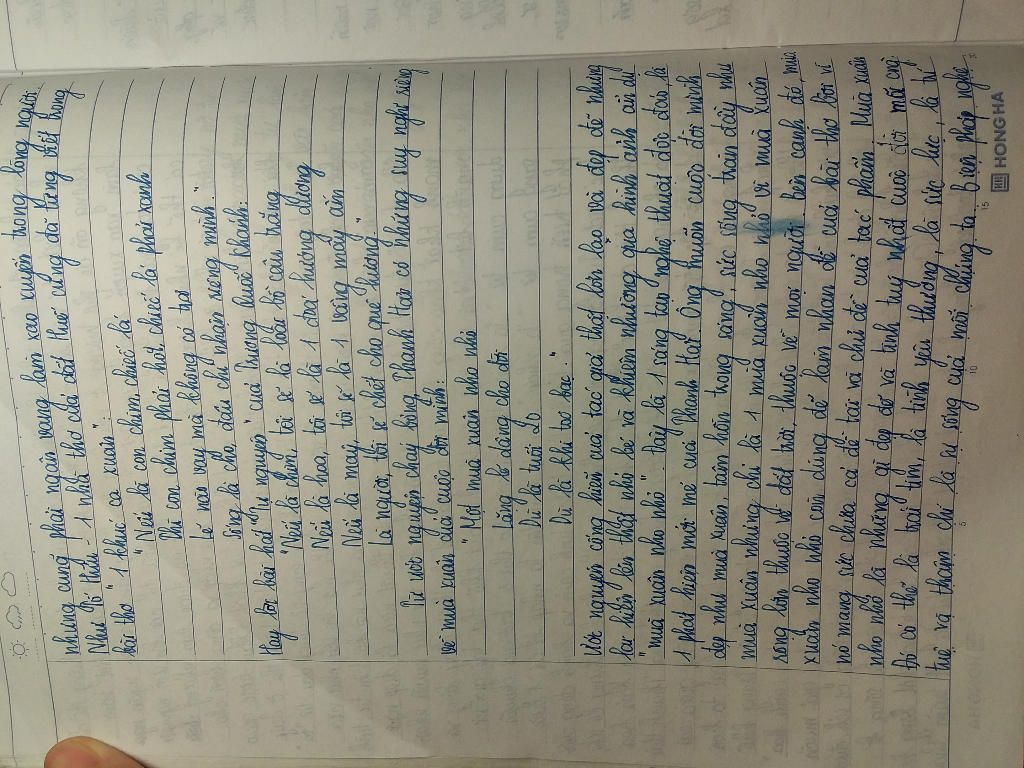 nhưng cũng phải ngân vang làm xao xuyến trong lòng người
Như Tố Hữu - 1 nhà thơ của đất Huế cũng đã từng viết trong
bài thơ "1 khúc ca xuân":
"Nếu là con chim chiếc lá
Thì con chim phải hót chiếc lá phải xanh
Lẽ nào vay mà không có trả
Sống là cho đâu chỉ nhận riêng mình."
Hay lời bài hát "Tự nguyện" của Trương Quốc Khánh:
"Nếu là chim, tôi sẽ là loài bồ câu trắng
Nếu là hoa, tôi sẽ là 1 đoá hướng dương
Nếu là mây, tôi sẽ là 1 vầng mây ấm
Là người, tôi sẽ chết cho quê hương"
Từ ước nguyện cháy bỏng Thanh Hải có những suy nghĩ sáng
về mùa xuân của cuộc đời mình:
"Một mùa xuân nho nhỏ
Lặng lẽ dâng cho đời
Dù là tuổi 20
Dù là khi tóc bạc."
Ước nguyện cống hiến của tác giả thật lớn lao và đẹp đẽ nhưng
lại hiện lên thật nhỏ bé và khiêm nhường qua hình ảnh ẩn dụ
"mùa xuân nho nhỏ". Đây là 1 sáng tạo nghệ thuật độc đáo, là
1 phát hiện mới mẻ của Thanh Hải. Ông muốn cuộc đời mình
đẹp như mùa xuân, tâm hồn trong sáng, sức sống tràn đầy như
mùa xuân nhưng chỉ là 1 mùa xuân nho nhỏ vì mùa xuân
rộng lớn thuộc về đất trời, thuộc về mọi người. Bên cạnh đó, mùa
xuân nho nhỏ còn dùng để làm nhan đề của bài thơ bởi vì
nó mang sức chứa cả đề tài và chủ đề của tác phẩm. Mùa xuân
nho nhỏ là những gì đẹp đẽ và tinh tuý nhất cuộc đời mỗi con
Đó có thể là trái tim, là tình yêu thương, là sức lực, là trí
tuệ và thậm chí là sự sống của mỗi chúng ta. Biện pháp nghệ
HONG HA